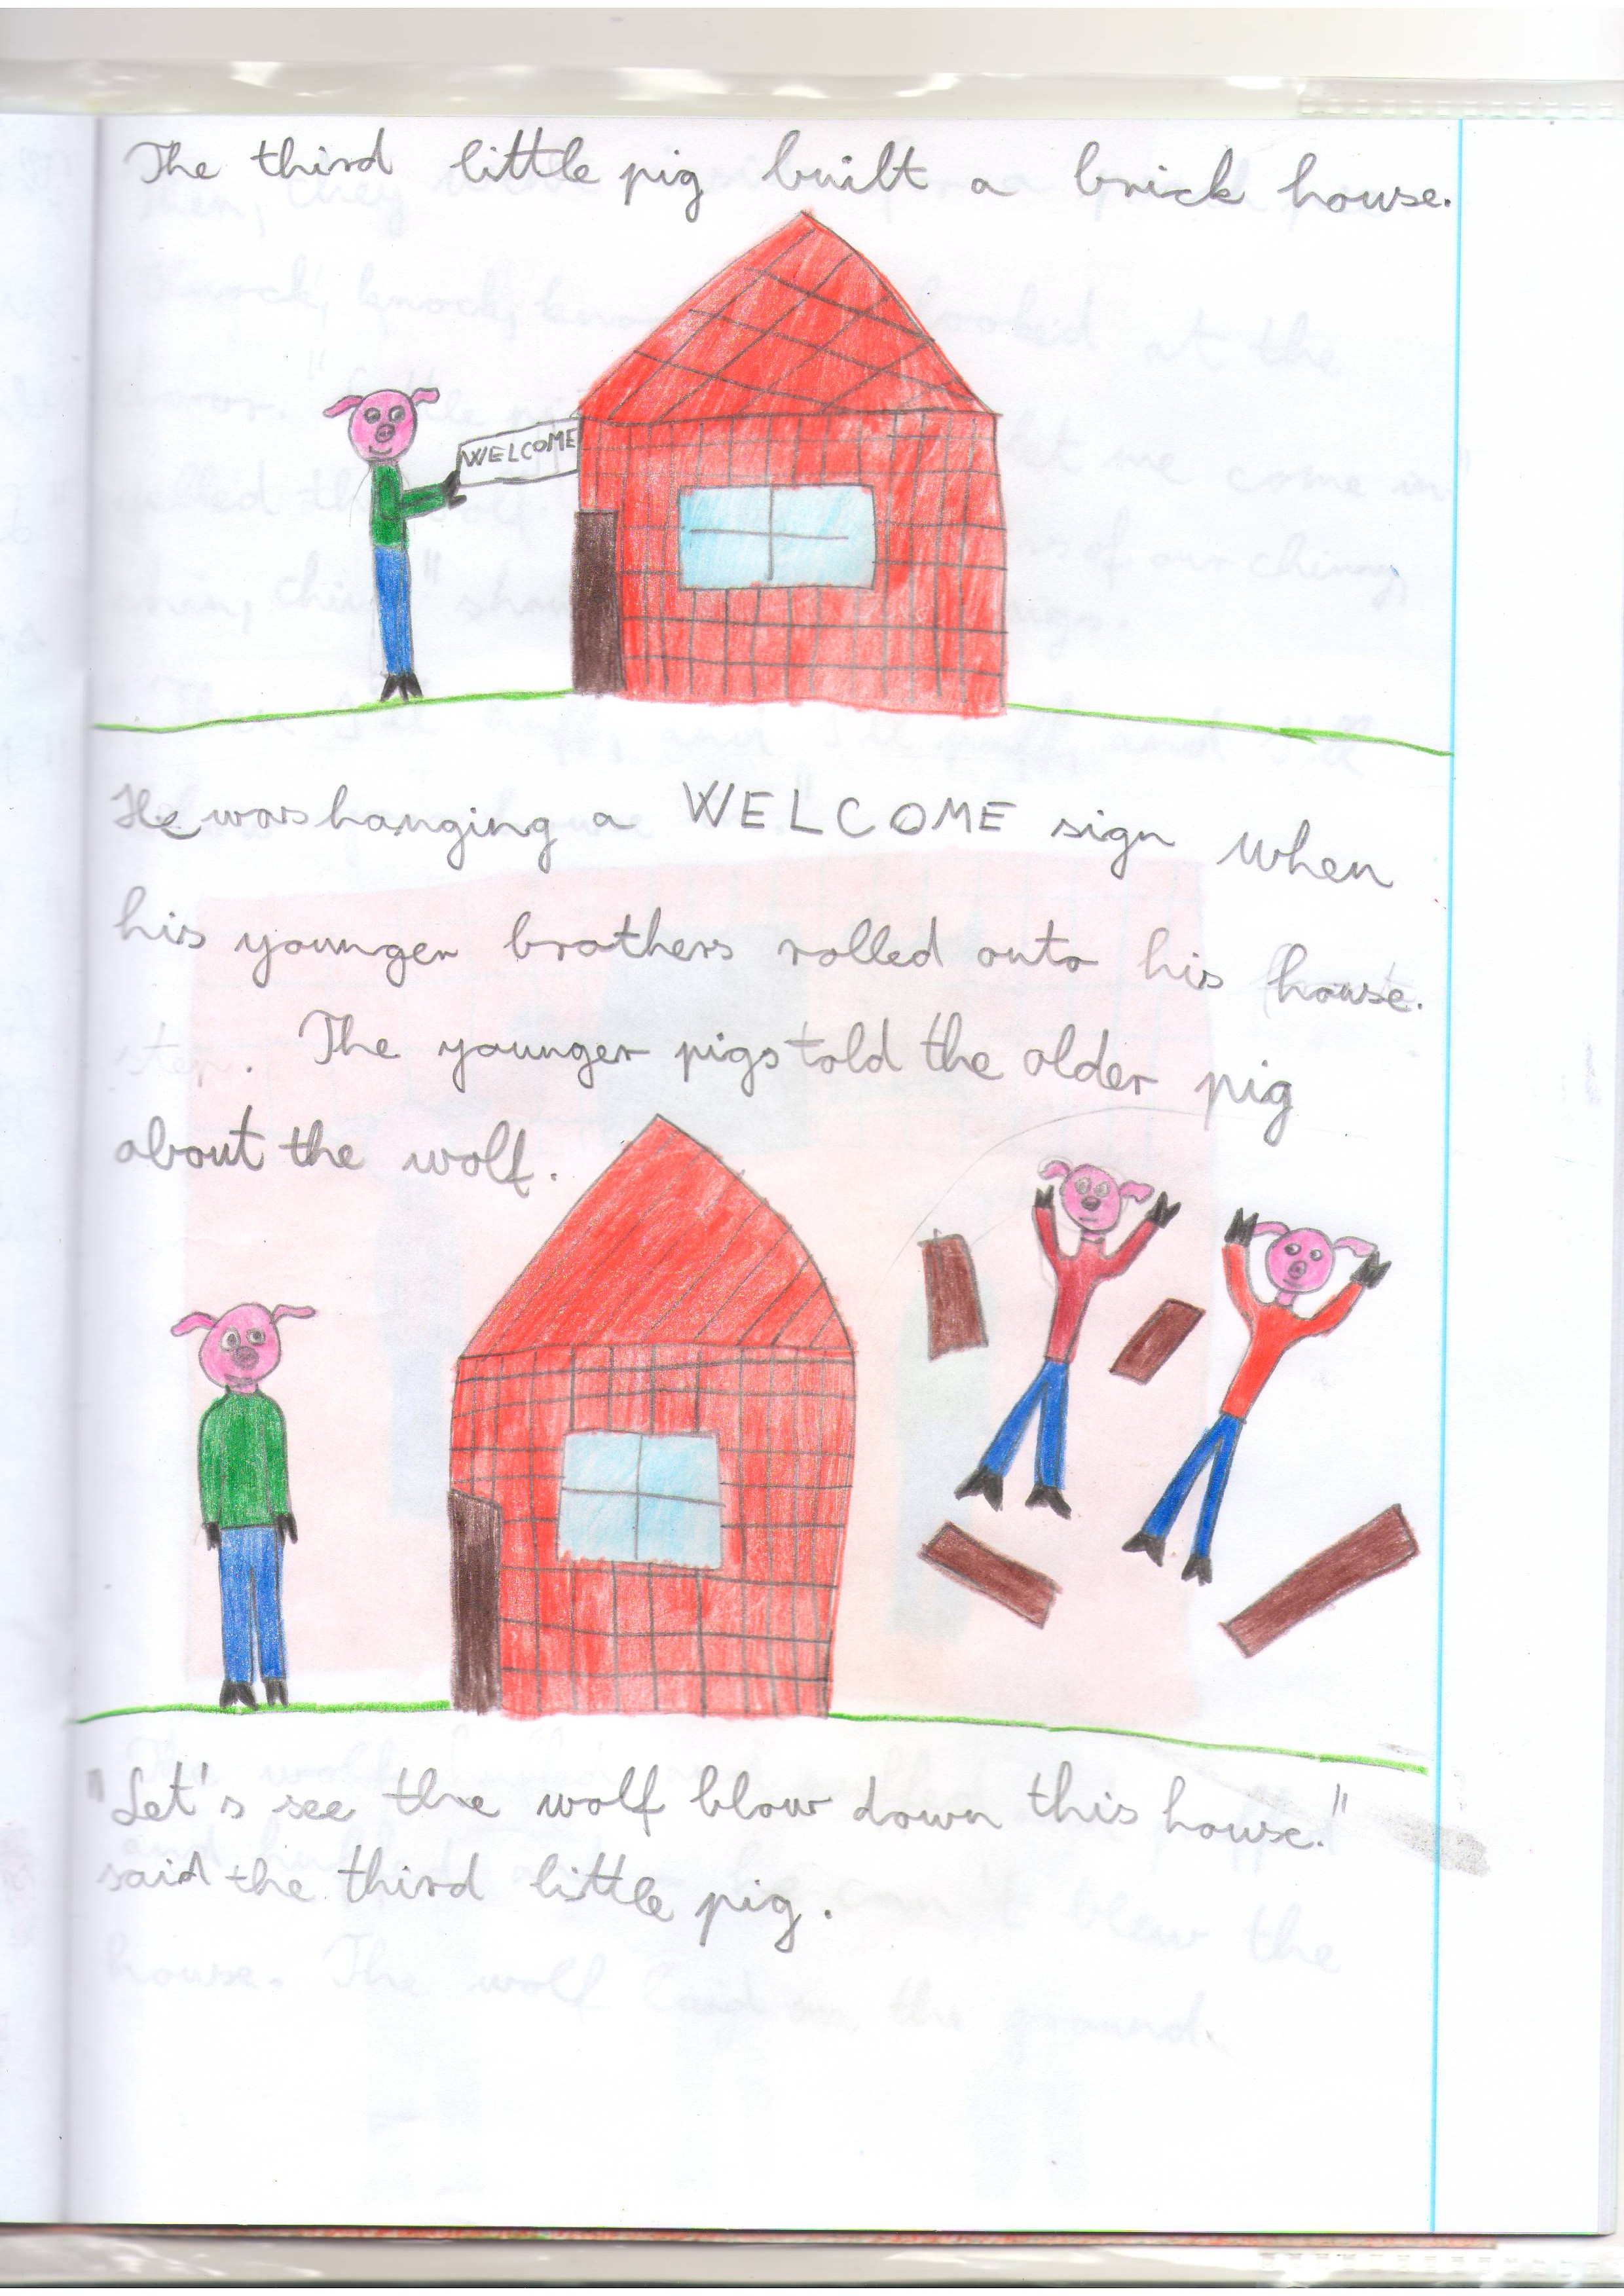 The third little pig built a brick house.
WELCOME
He was hanging a WELCOME sign when
his younger brothers rolled onto his house.
step. The younger pigs told the older pig
about the wolf.
"Let's see the wolf blow down this house."
said the third little pig.